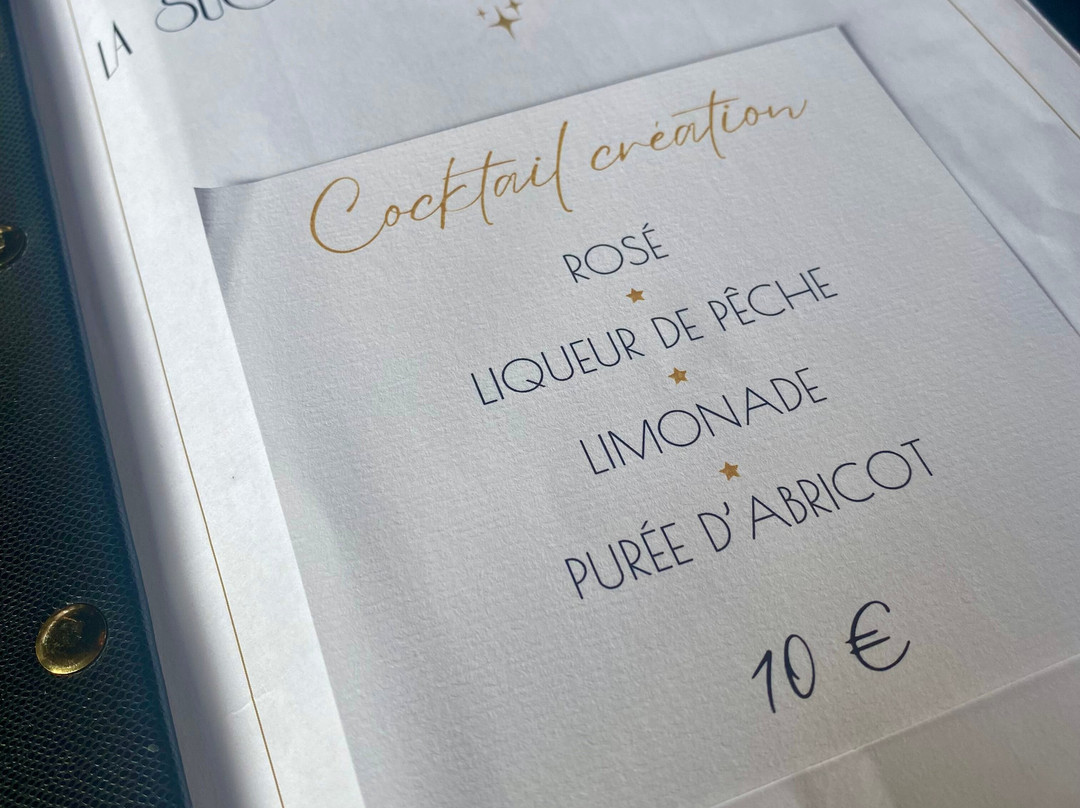 LA
Cocktail création
ROSÉ
LIQUEUR DE PÊCHE
LIMONADE
PURÉE D'ABRICOT
10 €